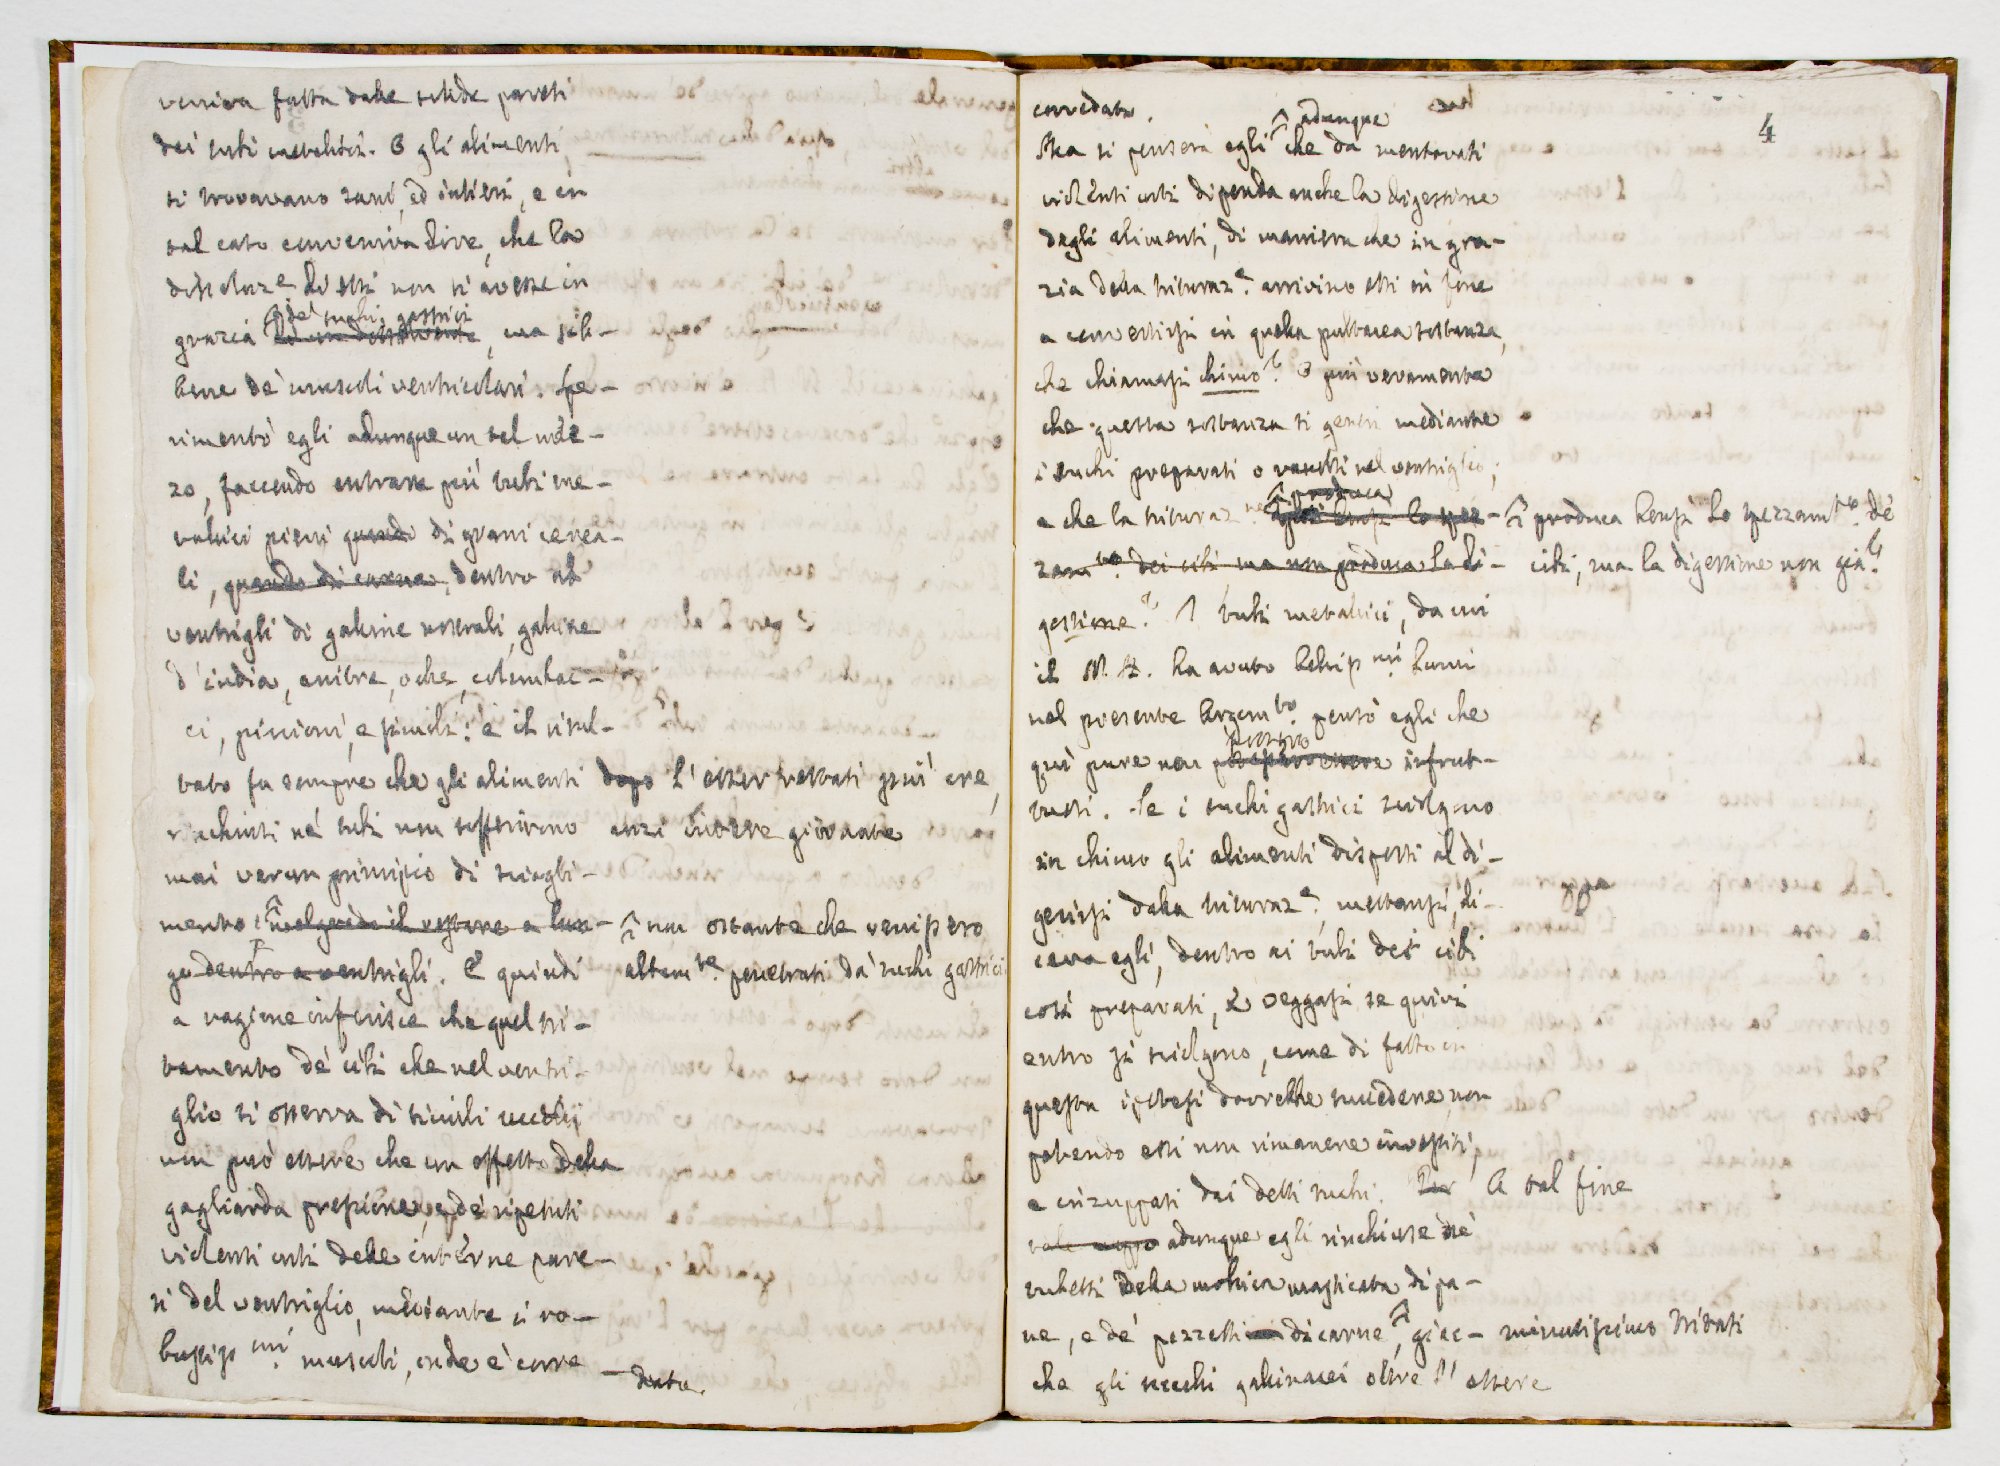 veniva fatta dalle solide pareti
dei tubi metallici. O gli alimenti
si trovavano sani, ed intieri, e in
tal caso conveniva dire, che la
dissoluz.e di essi non si avesse in
grazia de' suchi gastrici
ad un dissolvente, ma seb-
bene de' muscoli ventricolari. Spe-
rimentò egli adunque un tal mez-
zo, facendo entrare più tubi me-
tallici pieni quando di grani cerea-
li, quando di carne, dentro al
ventrigli di galline nostrali, galline
d'india, anitre, oche, colombac-
ci, piccioni, e simili: e il risul-
tato fu sempre che gli alimenti dopo l'esser restati più ore,
rinchiusi ne' tubi non soffrirono anzi intere giornate
mai verun principio di sciogli-
mento malgrado il restare a lun- non ostante che venissero
go dentro a ventrigli. E quindi altam.te penetrati da' suchi gastrici
a ragione inferisce che quel tri-
tamento de' cibi che nel ventri-
glio si osserva di simili uccelli
non può essere che un effetto della
gagliarda pressione, e de' ripetuti
violenti urti delle interne pare-
ti del ventriglio, mediante i ro-
bustiss.mi muscoli, onde è corre-
data.
corredato.
adunque
Ma si penserà egli che da mentovati
violenti urti dipenda anche la digestione
degli alimenti, di maniera che in gra-
zia della trituraz.e arrivino essi in fine
a convertirsi in quella pultacea sostanza,
che chiamasi chimo? O più veramente
che questa sostanza si generi mediante
i suchi preparati o raccolti nel ventriglio;
produca
e che la trituraz.ne bensì lo spez- produca bensì lo spezzam.to de'
zam.to dei cibi ma non produca la di- cibi, ma la digestione non già?
gestione? I tubi metallici, da cui
il N. A. ha avuto bellis.mi lumi
nel presente argom.to pensò egli che
qui pure non infrut-
tuosi. Se i suchi gastrici sciolgono
in chimo gli alimenti disposti al di-
gerirsi dalla trituraz.e, mettansi, di-
ceva egli, dentro ai tubi dei cibi
così preparati, e veggasi se quivi
entro si sciolgono, come di fatto in
questa ipotesi dovrebbe succedere, non
potendo essi non rimanere investiti,
e inzuppati dai detti suchi. Per A tal fine
tale uopo adunque egli rinchiuse ne'
tubetti della mollica masticata di pa-
ne, e de' pezzetti di carne, giac- minutissimo tritati
che gli uccelli gallinacei oltre l'essere
4